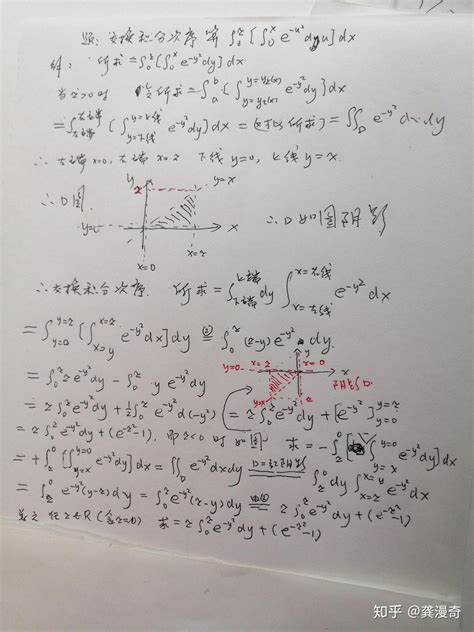 题: 交换积分次序 算 ∫₀ᶻ[∫₀ˣ e^{-u²}du]dx
解: 所求=∫₀ᶻ[∫₀ˣ e^{-y²}dy]dx
当z>0时 所求=∫ₐᵇ{∫_{y=y₁(x)}^{y=y₂(x)} e^{-y²}dy}dx
=∫_{左端}^{右端}[∫_{y=下线}^{y=上线} e^{-y²}dy]dx = (所求) = ∬_D e^{-y²}dxdy
∴ 左端 x=0, 右端 x=z 下线 y=0, 上线 y=x.
∴ D图
y
z
y=x
y=0
x
x=0
x=z
∴ D如图阴影
∴ 交换积分次序. 所求=∫_{下端}^{上端}dy∫_{x=左线}^{x=右线} e^{-y²}dx
=∫_{y=0}^{y=z}[∫_{x=y}^{x=z} e^{-y²}dx]dy ②= ∫₀ᶻ(z-y)e^{-y²}dy.
=∫₀ᶻ z e^{-y²}dy-∫₀ᶻ y e^{-y²}dy
y=0
x=z
y
x=0
x
y=x
z
阴影D.
=z∫₀ᶻ e^{-y²}dy+½∫₀ᶻ e^{-y²}d(-y²)=z∫₀ᶻ e^{-y²}dy+[e^{-y²}]_{y=0}^{y=z}
=z∫₀ᶻ e^{-y²}dy+(e^{-z²}-1), 而z<0时 如图 求=-∫_z⁰[∫_{y=x}^{y=0} e^{-y²}dy]dx
=+∫_z⁰[∫_{y=x}^{y=0} e^{-y²}dy]dx=∬_D e^{-y²}dxdy D=红阴影 ∫_z⁰dy∫_{x=z}^{x=y} e^{-y²}dx
=∫_z⁰ e^{-y²}(y-z)dy=∫₀ᶻ e^{-y²}(z-y)dy 由② z∫₀ᶻ e^{-y²}dy+(e^{-z²}-1)
总之 任z∈R(含z=0) 求=z∫₀ᶻ e^{-y²}dy+(e^{-z²}-1)
知乎 @龚漫奇